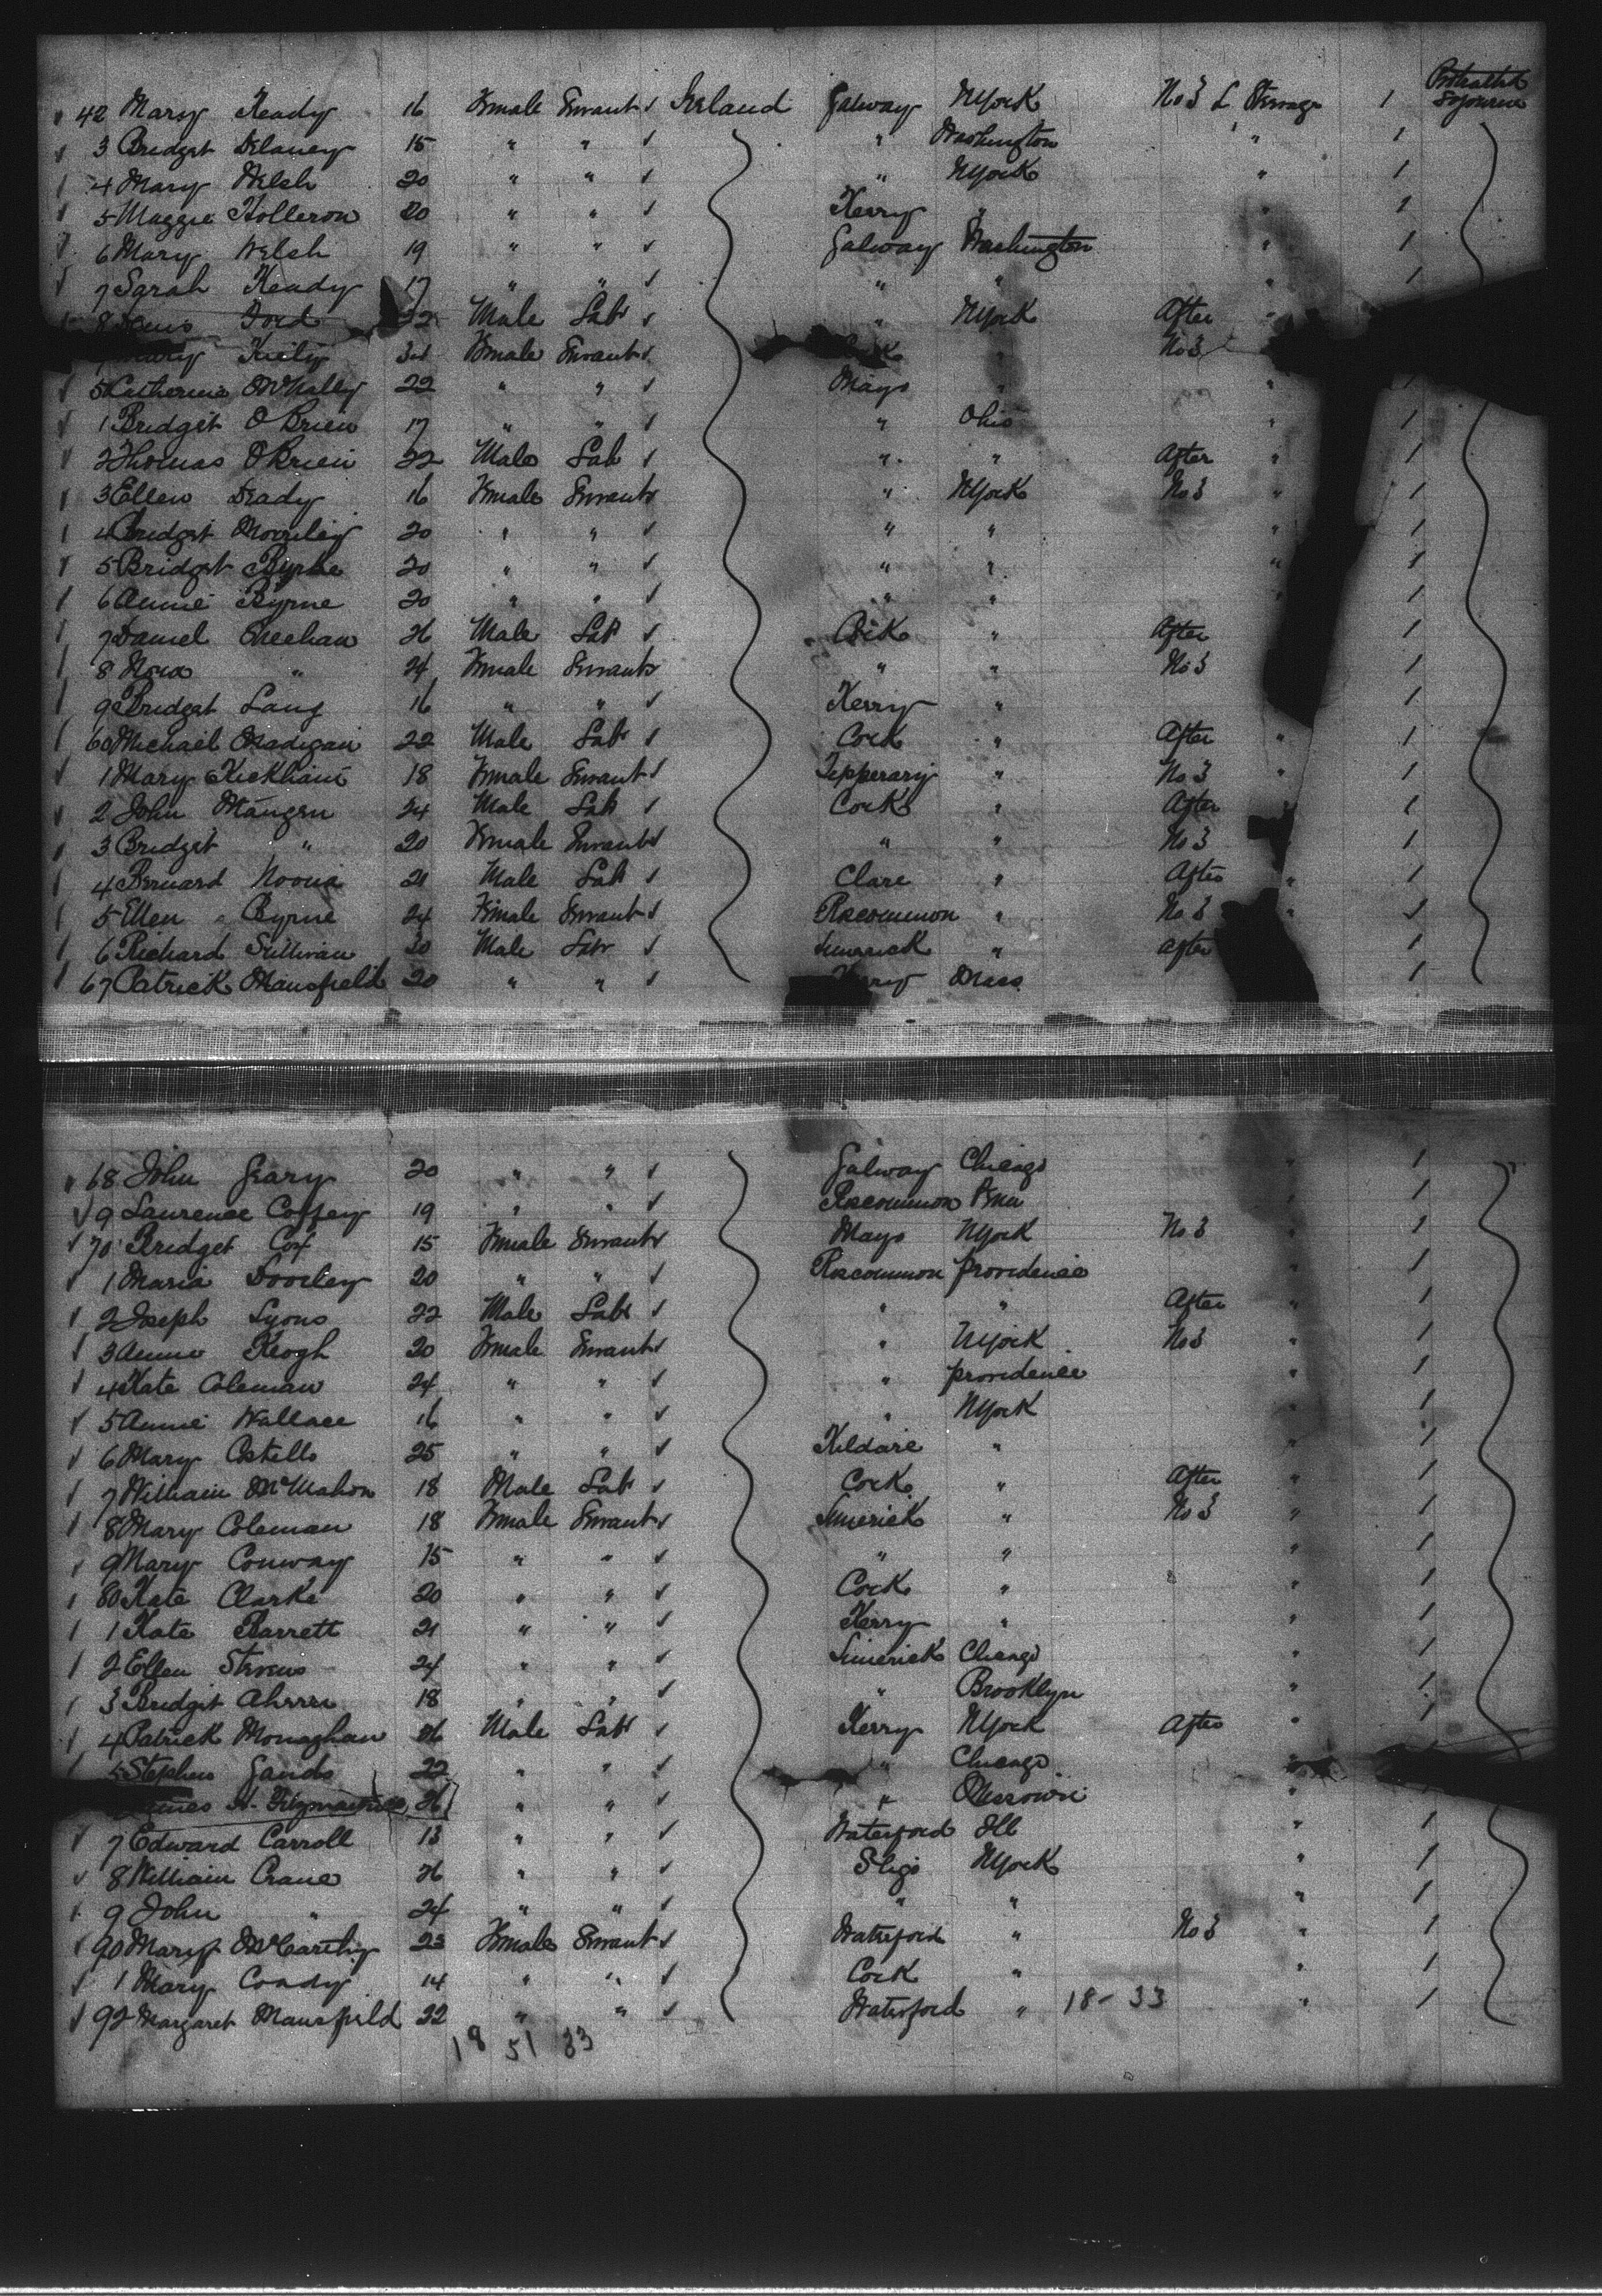 42 Mary Keady 16 Female Servant Ireland Galway NYork No 3 L Steerage 1 Protracted Sojourn
3 Bridget Delaney 15 " " " Washington " 1
4 Mary Welsh 20 " " " NYork " 1
5 Maggie Holleron 20 " " Kerry " " 1
6 Mary Welsh 19 " " Galway Washington " 1
7 Sarah Keady 17 " " " " 1
8 Ford 22 Male Lab " NYork After "
Mary Kiely 34 Female Servant " No 3
5 Catherine McNally 22 " " Mayo " "
1 Bridget OBrien 17 " " " Ohio " 1
2 Thomas OBrien 22 Male Lab " " After " 1
3 Ellen Deady 16 Female Servant " NYork No 3 " 1
4 Bridget 20 " " " " " 1
5 Bridget Byrne 20 " " " " " 1
6 Annie Byrne 20 " " " " " 1
7 Daniel Sheehan 26 Male Lab Cork " After 1
8 Nora " 24 Female Servant " " No 3 1
9 Bridget Lang 16 " " Kerry " 1
60 Michael Madigan 22 Male Lab Cork " After " 1
1 Mary Kickham 18 Female Servant Tipperary " No 3 " 1
2 John Mangan 24 Male Lab Cork " After 1
3 Bridget " 20 Female Servant " " No 3 1
4 Bernard Noona 21 Male Lab Clare " After " 1
5 Ellen Byrne 24 Female Servant Roscommon " No 3 " 1
6 Richard Sullivan 20 Male Lab Limerick " after 1
67 Patrick Mansfield 20 " " Mass 1
68 John Geary 20 " " Galway Chicago " 1
9 Laurence Coffey 19 " " Roscommon Pena 1
70 Bridget Cox 15 Female Servant Mayo NYork No 3 " 1
1 Maria Doorley 20 " " Roscommon providence " 1
2 Joseph Lyons 22 Male Lab " " After " 1
3 Annie Keogh 20 Female Servant " NYork No 3 " 1
4 Kate Coleman 24 " " " providence " 1
5 Annie Wallace 16 " " " NYork " 1
6 Mary Costello 25 " " Kildare " " 1
7 William McMahon 18 Male Lab Cork " After " 1
8 Mary Coleman 18 Female Servant Limerick " No 3 " 1
9 Mary Conway 15 " " " " " 1
80 Kate Clarke 20 " " Cork " " 1
1 Kate Barrett 21 " " Kerry " " 1
2 Ellen Stevens 24 " " Limerick Chicago " 1
3 Bridget Ahern 18 " " " Brooklyn " 1
4 Patrick Monaghan 26 Male Lab Kerry NYork After " 1
5 Stephen Sands 22 " " " Chicago "
H. Fitzmaurice 26 " " " "
7 Edward Carroll 13 " " Waterford Ill " 1
8 William Crane 26 " " Sligo NYork " 1
9 John " 24 " " " " " 1
90 Mary McCarthy 23 Female Servant Waterford " No 3 " 1
1 Mary Condy 14 " " Cork " " 1
92 Margaret Mansfield 22 " " Waterford " 18 - 33 " 1
18 51 33